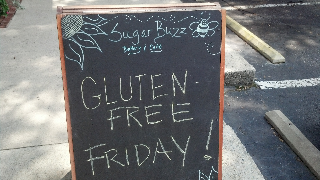 Sugar Buzz
Bakery & Cafe
GLUTEN-
FREE
FRIDAY!